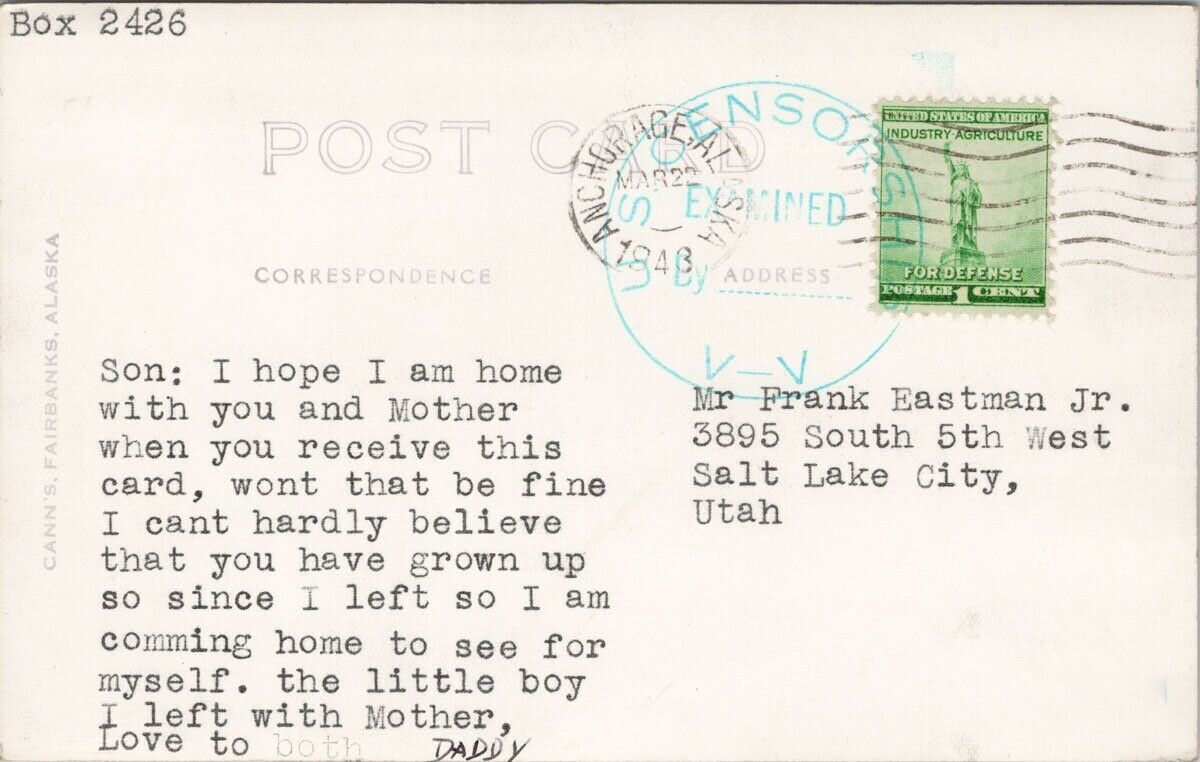 Box 2426
POST CARD
ANCHORAGE, ALASKA
MAR 22
1943
U S CENSORSHIP
EXAMINED
By
V-V
UNITED STATES OF AMERICA
INDUSTRY-AGRICULTURE
FOR DEFENSE
POSTAGE 1 CENT
CORRESPONDENCE
ADDRESS
CANN'S, FAIRBANKS, ALASKA
Son: I hope I am home
with you and Mother
when you receive this
card, wont that be fine
I cant hardly believe
that you have grown up
so since I left so I am
comming home to see for
myself. the little boy
I left with Mother,
Love to both DADDY
Mr Frank Eastman Jr.
3895 South 5th West
Salt Lake City,
Utah